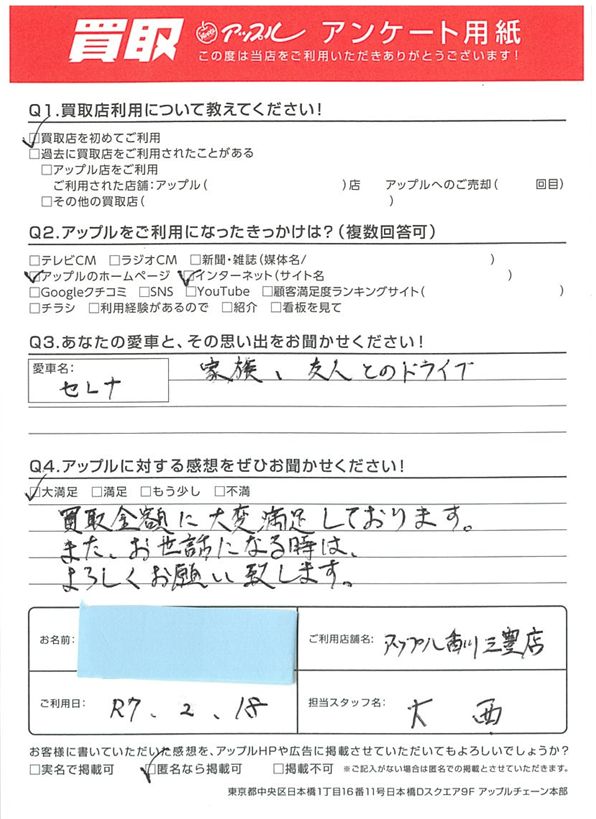 買取 アップル アンケート用紙
この度は当店をご利用いただきありがとうございます!
Q1.買取店利用について教えてください!
☑買取店を初めてご利用
□過去に買取店をご利用されたことがある
□アップル店をご利用
ご利用された店舗:アップル( )店 アップルへのご売却( 回目)
□その他の買取店( )
Q2.アップルをご利用になったきっかけは?(複数回答可)
□テレビCM □ラジオCM □新聞・雑誌(媒体名/ )
☑アップルのホームページ ☑インターネット(サイト名 )
□Googleクチコミ □SNS □YouTube □顧客満足度ランキングサイト( )
□チラシ □利用経験があるので □紹介 □看板を見て
Q3.あなたの愛車と、その思い出をお聞かせください!
愛車名:
セレナ
家族、友人とのドライブ
Q4.アップルに対する感想をぜひお聞かせください!
☑大満足 □満足 □もう少し □不満
買取金額に大変満足しております。
また、お世話になる時は、
よろしくお願い致します。
お名前:
ご利用店舗名: アップル香川三豊店
ご利用日: R7.2.18
担当スタッフ名: 大西
お客様に書いていただいた感想を、アップルHPや広告に掲載させていただいてもよろしいでしょうか?
□実名で掲載可 ☑匿名なら掲載可 □掲載不可 ※ご記入がない場合は匿名での掲載とさせていただきます。
東京都中央区日本橋1丁目16番11号日本橋Dスクエア9F アップルチェーン本部